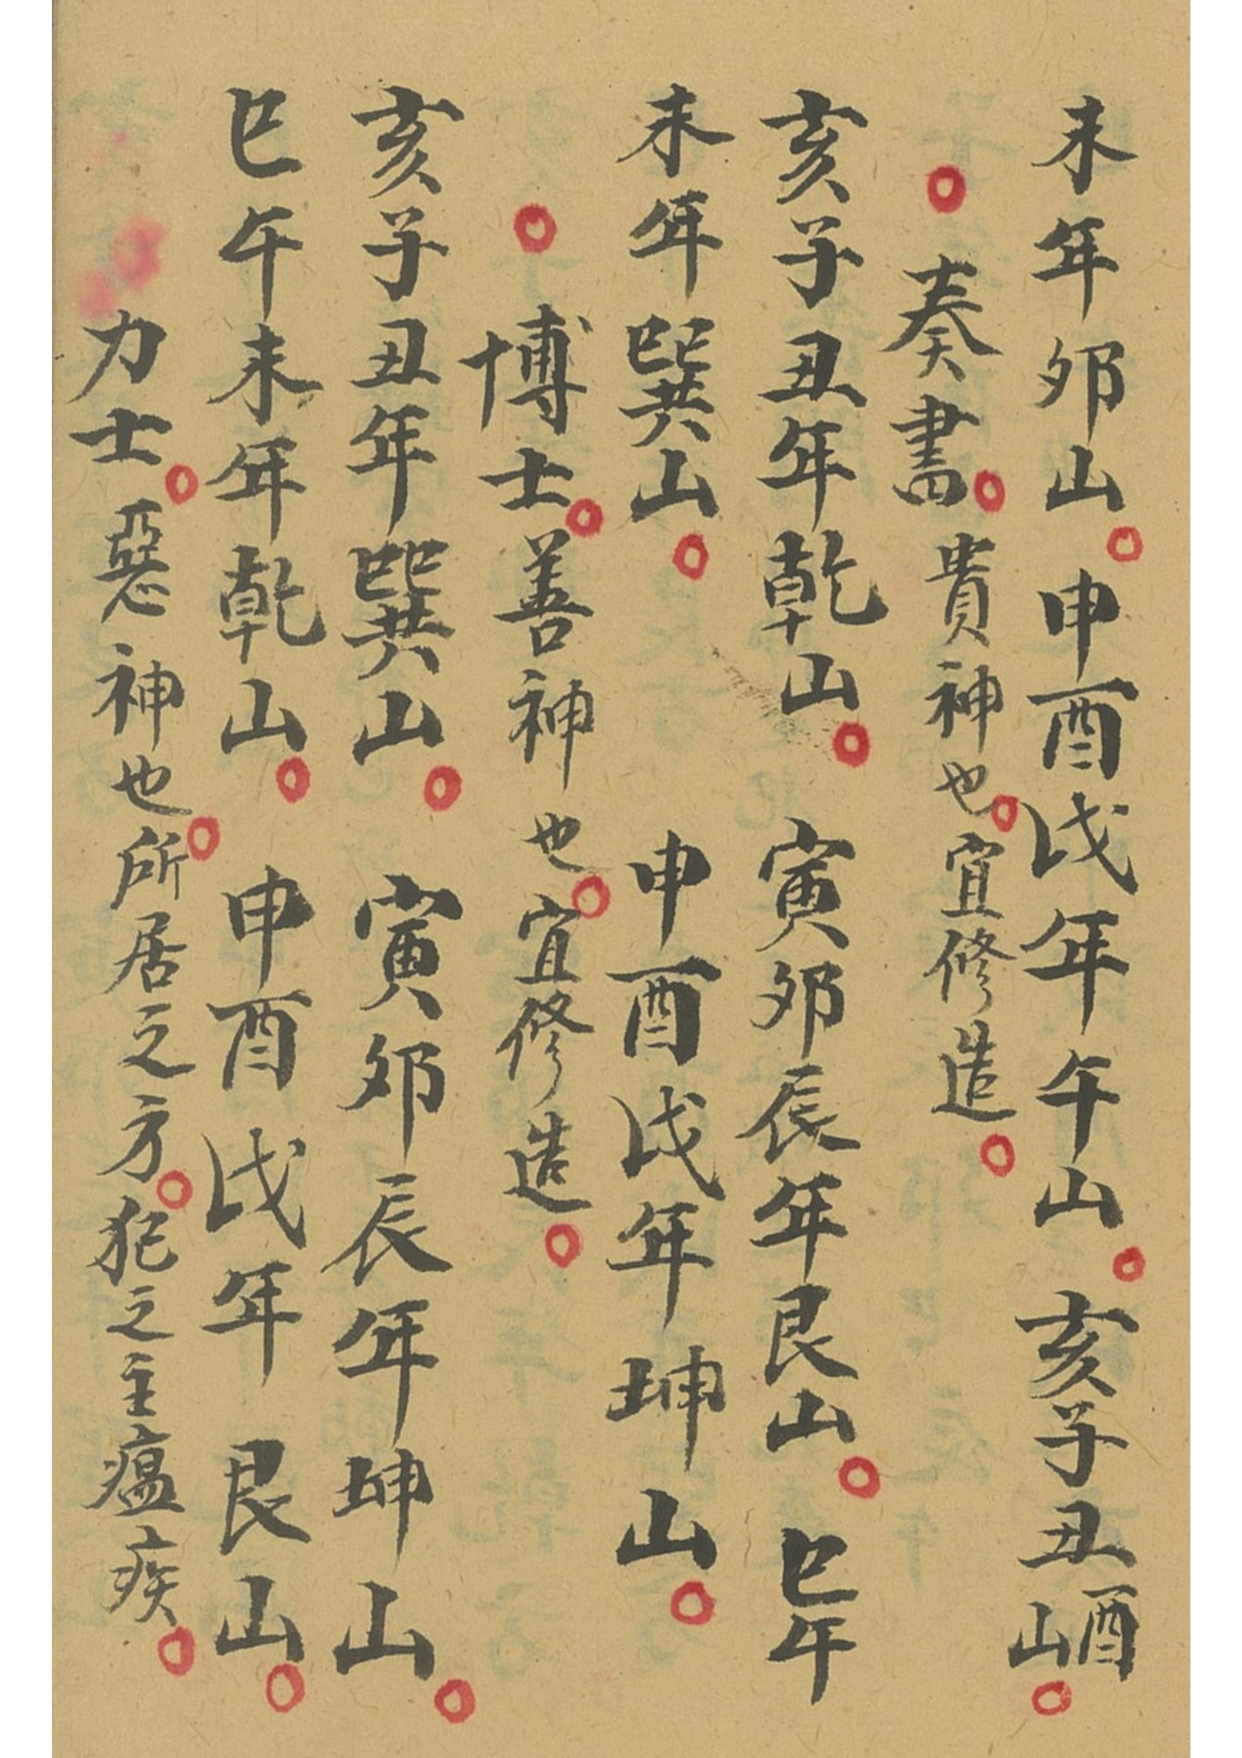 未年夘山。申酉戌年午山。亥子丑酉山。
。奏書。貴神也。宜修造。
亥子丑年乾山。寅夘辰年艮山。巳午
未年巽山。申酉戌年坤山。
。博士。善神也。宜修造。
亥子丑年巽山。寅夘辰年坤山。
巳午未年乾山。申酉戌年艮山。
力士。惡神也。所居之方。犯之主瘟疾。